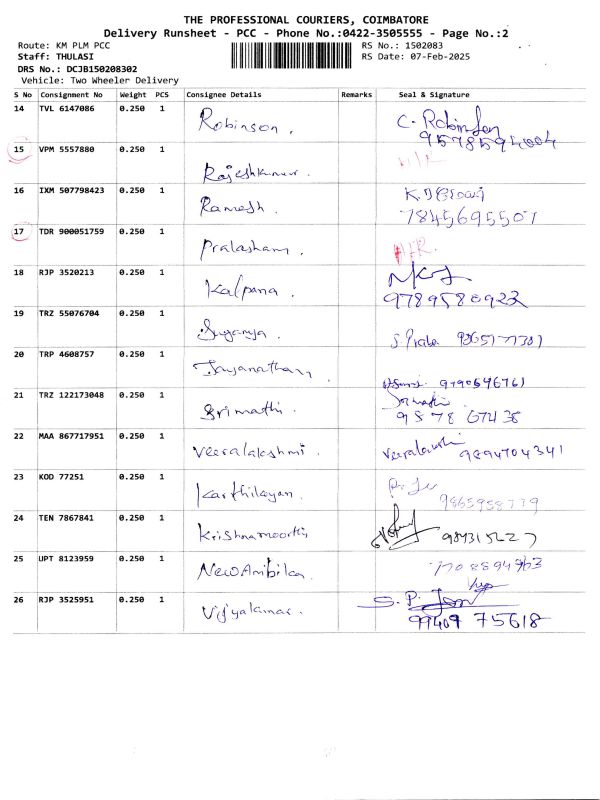 THE PROFESSIONAL COURIERS, COIMBATORE
Delivery Runsheet - PCC - Phone No.:0422-3505555 - Page No.:2
Route: KM PLM PCC RS No.: 1502083
Staff: THULASI RS Date: 07-Feb-2025
DRS No.: DCJB150208302
Vehicle: Two Wheeler Delivery
S No Consignment No Weight PCS Consignee Details Remarks Seal & Signature
14 TVL 6147086 0.250 1 Robinson. C. Robinson
9578594004
15 VPM 5557880 0.250 1 Rajeshkumar.
16 IXM 507798423 0.250 1 Ramesh.
7845695507
17 TDR 900051759 0.250 1 Pralasham.
18 RJP 3520213 0.250 1 Kalpana.
9789580923
19 TRZ 55076704 0.250 1 Suganya. S. Praba
20 TRP 4608757 0.250 1 Jayanatham.
21 TRZ 122173048 0.250 1 Srimathi. Srimathi
22 MAA 867717951 0.250 1 Veeralakshmi. Veeralakshmi 9894704341
23 KOD 77251 0.250 1 Karthikeyan.
9865958779
24 TEN 7867841 0.250 1 Krishnamoorthi
25 UPT 8123959 0.250 1 NewAmbika.
7708894763
26 RJP 3525951 0.250 1 Vijyakumar. S. P.
99409 75618